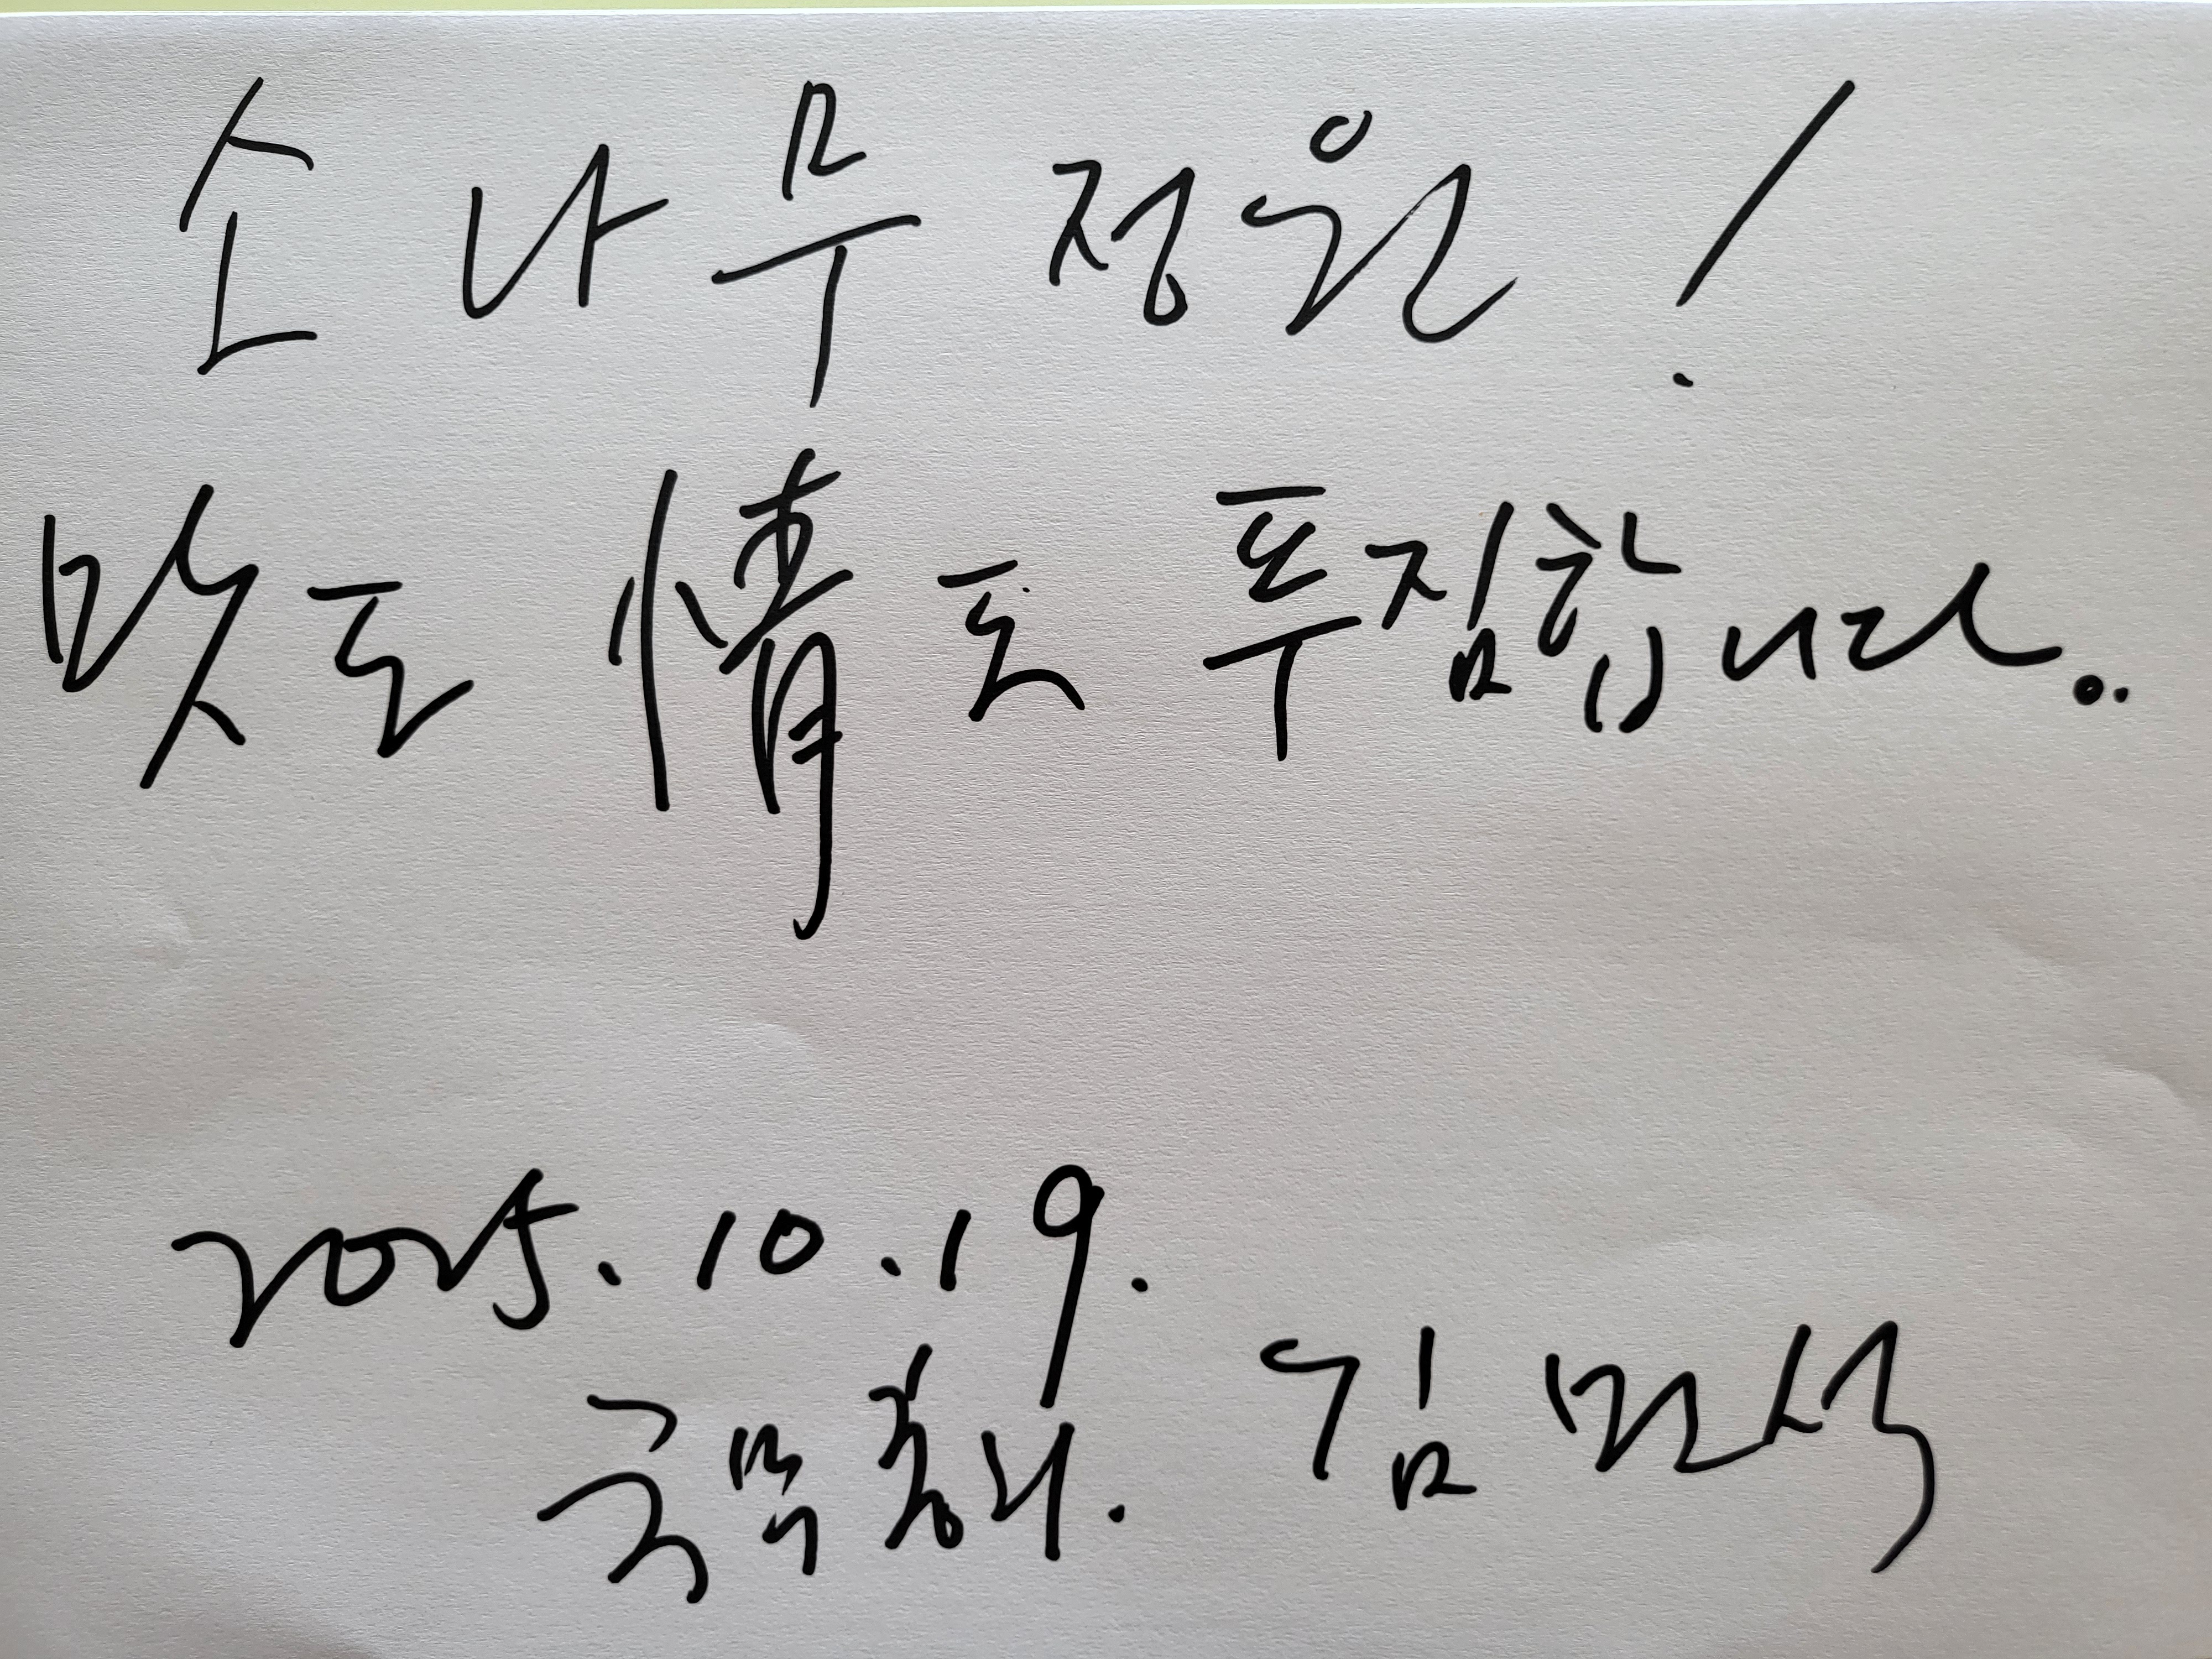 소나무 정원!
맛도 情도 푸짐합니다..
2025. 10. 19.
국무총리. 김민석